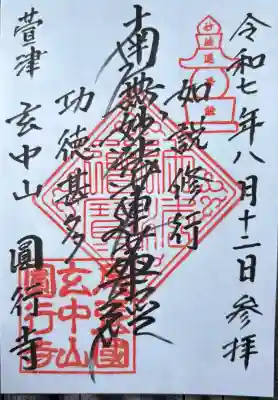 令和七年八月十二日参拝
如説修行
南無妙法蓮華経
功徳甚多
萱津 玄中山 圓行寺
尾張国
玄中山
圓行寺